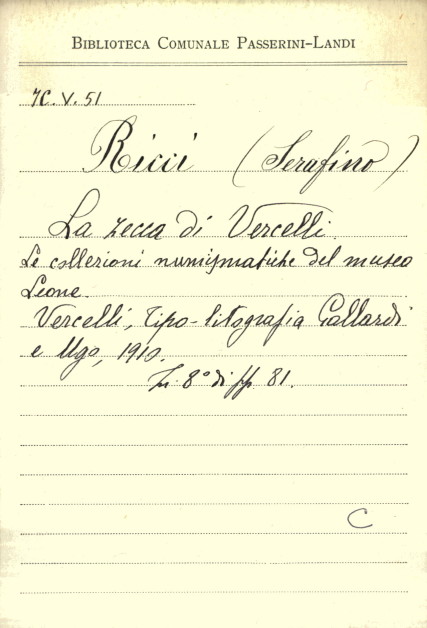 BIBLIOTECA COMUNALE PASSERINI-LANDI
7C. V. 51
Ricci (Serafino)
La zecca di Vercelli.
Le collezioni numismatiche del museo
Leone.
Vercelli, Tipo-litografia Gallardi
e Ugo, 1910.
In 8° di pp. 81.
C